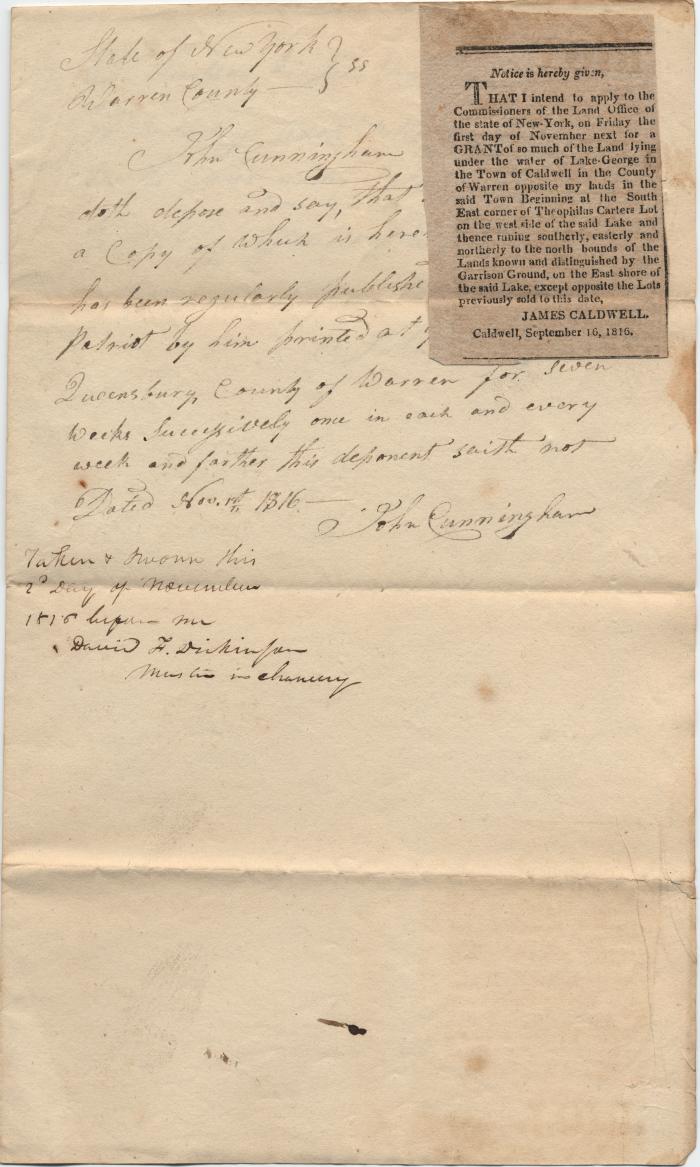 State of New York } ss
Warren County —
John Cunningham
doth depose and say, that
a Copy of which is here
has been regularly publishe
Patriot by him printed at
Queensbury, County of Warren for seven
weeks Successively once in each and every
week and farther this deponent saith not
Dated Nov. 1st, 1816 —
John Cunningham
Taken & Sworn this
2d Day of November
1816 before me
David F. Dickinson
Master in Chancery
Notice is hereby given,
THAT I intend to apply to the
Commissioners of the Land Office of
the state of New-York, on Friday the
first day of November next for a
GRANT of so much of the Land lying
under the water of Lake-George in
the Town of Caldwell in the County
of Warren opposite my lands in the
said Town Beginning at the South
East corner of Theophilus Carters Lot
on the west side of the said Lake and
thence runing southerly, easterly and
northerly to the north bounds of the
Lands known and distinguished by the
Garrison Ground, on the East shore of
the said Lake, except opposite the Lots
previously sold to this date,
JAMES CALDWELL.
Caldwell, September 16, 1816.